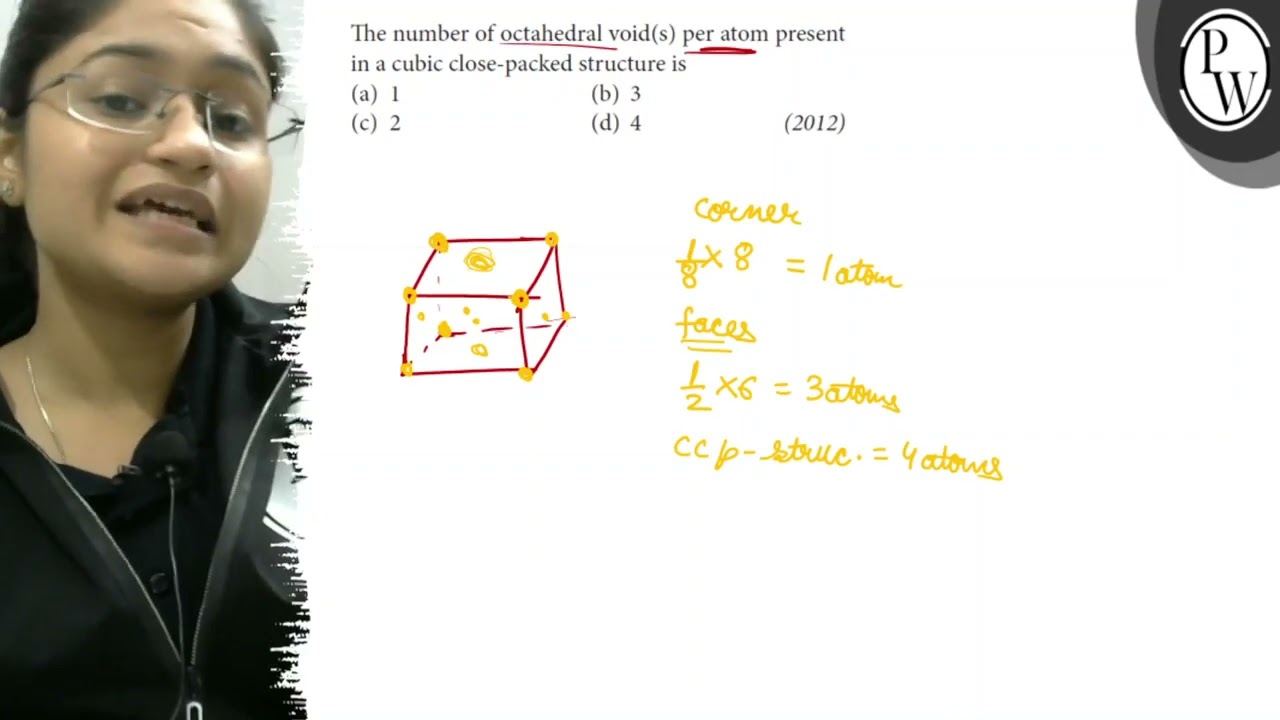 The number of octahedral void(s) per atom present
in a cubic close-packed structure is
(a) 1 (b) 3
(c) 2 (d) 4 (2012)
corner
1/8 × 8 = 1 atom
faces
1/2 × 6 = 3 atoms
ccp - struc. = 4 atoms
P
W